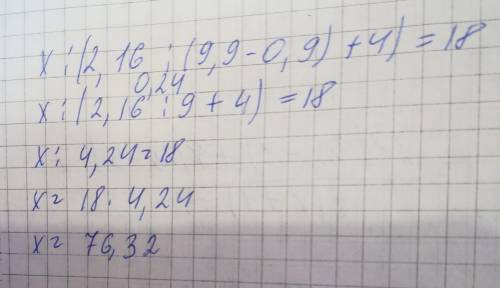 x : (2,16 : (9,9-0,9)+4) = 18
0,24
x : (2,16 : 9 + 4) = 18
x : 4,24 = 18
x = 18 · 4,24
x = 76,32